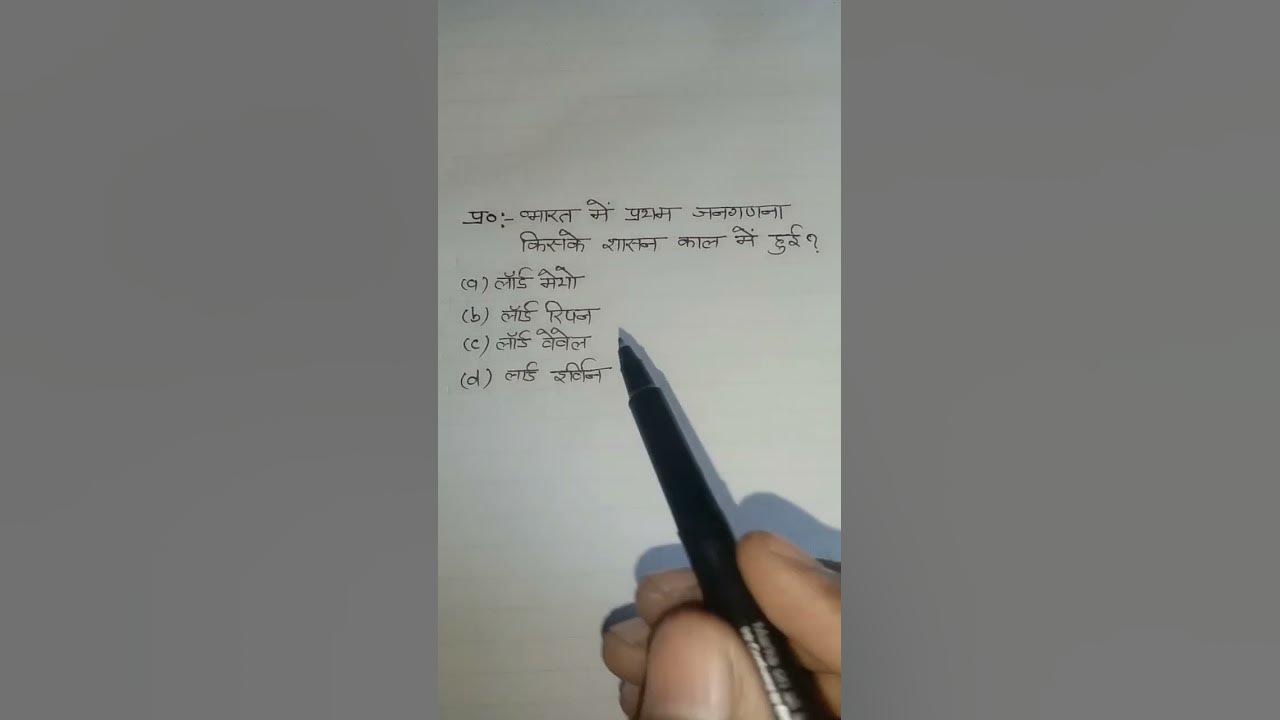 प्र०:- भारत में प्रथम जनगणना
किसके शासन काल में हुई?
(a) लॉर्ड मेयो
(b) लॉर्ड रिपन
(c) लॉर्ड वेवेल
(d) लार्ड इर्विन